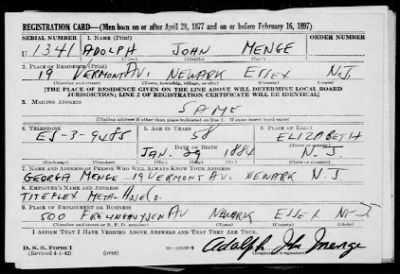 REGISTRATION CARD—(Men born on or after April 28, 1877 and on or before February 16, 1897)
SERIAL NUMBER 1. NAME (Print) ORDER NUMBER
U 1341 ADOLPH JOHN MENGE
(First) (Middle) (Last)
2. PLACE OF RESIDENCE (Print)
19 VERMONT AV. NEWARK ESSEX N.J.
(Number and street) (Town, township, village, or city) (County) (State)
[THE PLACE OF RESIDENCE GIVEN ON THE LINE ABOVE WILL DETERMINE LOCAL BOARD
JURISDICTION; LINE 2 OF REGISTRATION CERTIFICATE WILL BE IDENTICAL]
3. MAILING ADDRESS
SAME
[Mailing address if other than place indicated on line 2. If same insert word same]
4. TELEPHONE 5. AGE IN YEARS 6. PLACE OF BIRTH
ES-3-9485 58 ELIZABETH
DATE OF BIRTH
JAN. 29 1884 N.J.
(Exchange) (Number) (Mo.) (Day) (Yr.) (State or country)
7. NAME AND ADDRESS OF PERSON WHO WILL ALWAYS KNOW YOUR ADDRESS
GEORGA MENGE 19 VERMONT AV. NEWARK N.J.
8. EMPLOYER'S NAME AND ADDRESS
TITEFLEX METAL HOSE Co.
9. PLACE OF EMPLOYMENT OR BUSINESS
500 FRELINGHUYSEN AV NEWARK ESSEX N.J.
(Number and street or R. F. D. number) (Town) (County) (State)
I AFFIRM THAT I HAVE VERIFIED ABOVE ANSWERS AND THAT THEY ARE TRUE.
D. S. S. Form 1
(Revised 4-1-42) (over) Adolph John Menge